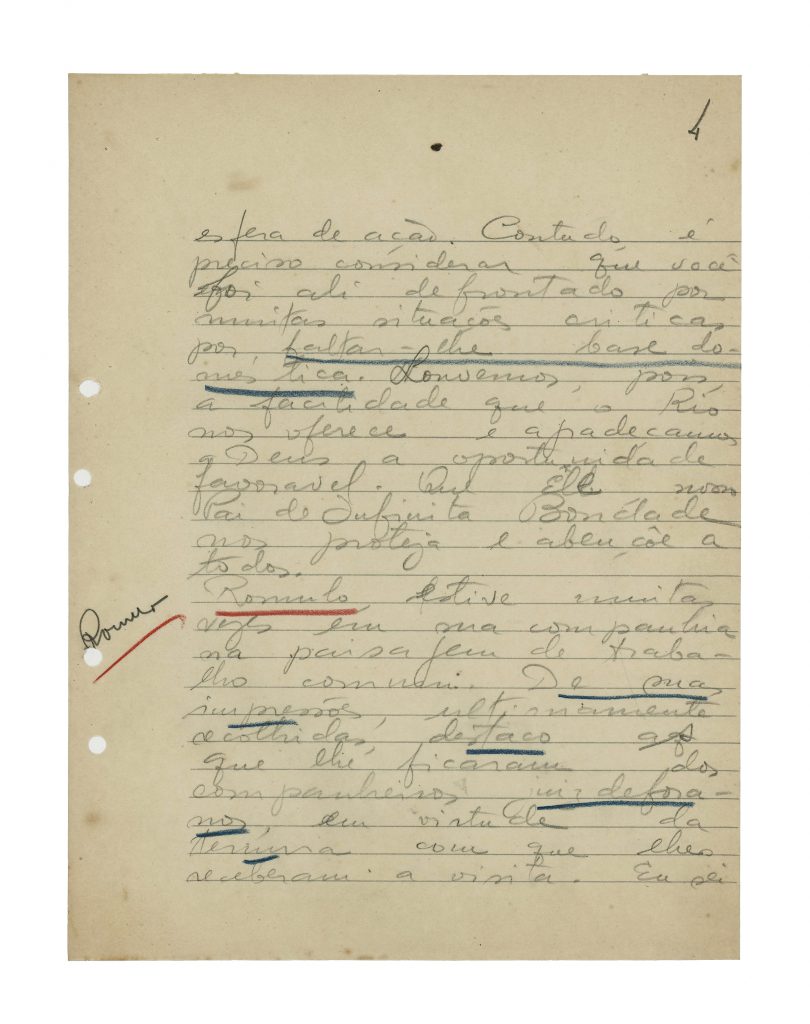 4
esfera de acão. Contudo é
preciso considerar que você
foi ali defrontado por
muitas situações criticas
por faltar-lhe base do-
méstica. Louvemos, pois,
a facilidade que o Rio
nos oferece e agradecamos
a Deus a oportunidade
favoravel. Que Êle nosso
Pai de Infinita Bondade
nos proteja e abençôe a
todos.
Romulo Estive muitas
vezes em sua companhia
na paisagem de traba-
lho comum. De suas
impressões, ultimamente
recolhidas, destaco as
que lhe ficaram dos
companheiros juizdefora-
nos, em virtude da
ternura com que lhes
receberam a visita. Eu sei
Romulo